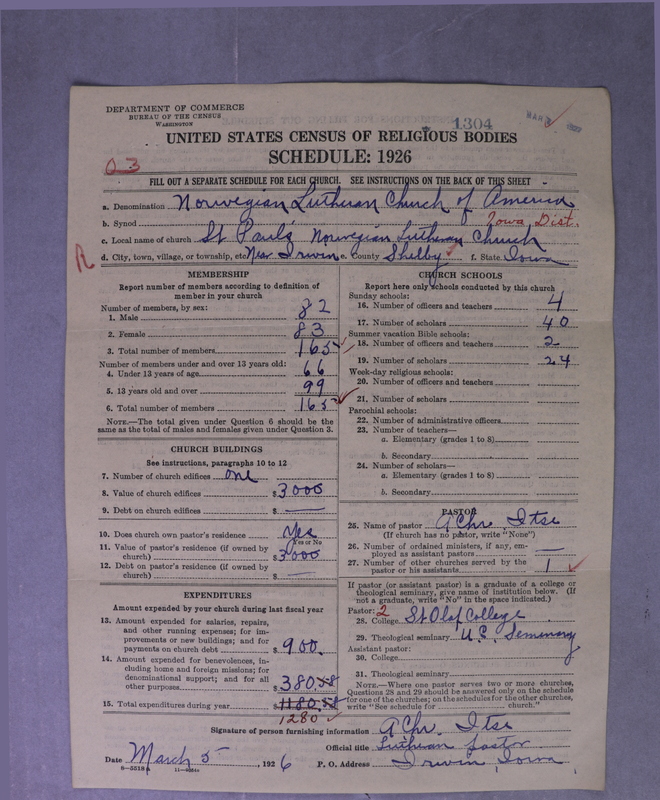 DEPARTMENT OF COMMERCE
BUREAU OF THE CENSUS
WASHINGTON
1304
MAR
UNITED STATES CENSUS OF RELIGIOUS BODIES
SCHEDULE: 1926
03
FILL OUT A SEPARATE SCHEDULE FOR EACH CHURCH. SEE INSTRUCTIONS ON THE BACK OF THIS SHEET
a. Denomination Norwegian Lutheran Church of America
b. Synod Iowa Dist.
c. Local name of church St Paul's Norwegian Lutheran Church
R
d. City, town, village, or township, etc. Near Irwin e. County Shelby f. State Iowa
MEMBERSHIP
Report number of members according to definition of member in your church
Number of members, by sex:
1. Male 82
2. Female 83
3. Total number of members 165
Number of members under and over 13 years old:
4. Under 13 years of age 66
5. 13 years old and over 99
6. Total number of members 165
NOTE.—The total given under Question 6 should be the
same as the total of males and females given under Question 3.
CHURCH BUILDINGS
See instructions, paragraphs 10 to 12
7. Number of church edifices one
8. Value of church edifices $3000
9. Debt on church edifices $ —
10. Does church own pastor's residence Yes
Yes or No
11. Value of pastor's residence (if owned by
church) $3000
12. Debt on pastor's residence (if owned by
church) $ —
EXPENDITURES
Amount expended by your church during last fiscal year
13. Amount expended for salaries, repairs,
and other running expenses; for im-
provements or new buildings; and for
payments on church debt $900.
14. Amount expended for benevolences, in-
cluding home and foreign missions; for
denominational support; and for all
other purposes $380.58
15. Total expenditures during year $1180.58
1280
CHURCH SCHOOLS
Report here only schools conducted by this church
Sunday schools:
16. Number of officers and teachers 4
17. Number of scholars 40
Summer vacation Bible schools:
18. Number of officers and teachers 2
19. Number of scholars 24
Week-day religious schools:
20. Number of officers and teachers
21. Number of scholars
Parochial schools:
22. Number of administrative officers
23. Number of teachers—
a. Elementary (grades 1 to 8)
b. Secondary
24. Number of scholars—
a. Elementary (grades 1 to 8)
b. Secondary
PASTOR
25. Name of pastor A Chr. Itse
(If church has no pastor, write "None")
26. Number of ordained ministers, if any, em-
ployed as assistant pastors —
27. Number of other churches served by the
pastor or his assistants 1
If pastor (or assistant pastor) is a graduate of a college or
theological seminary, give name of institution below. (If
not a graduate, write "No" in the space indicated.)
Pastor: 2
28. College St Olaf College
29. Theological seminary U.C. Seminary
Assistant pastor:
30. College
31. Theological seminary
NOTE.—Where one pastor serves two or more churches,
Questions 28 and 29 should be answered only on the schedule
for one of the churches; on the schedules for the other churches,
write "See schedule for church."
Signature of person furnishing information A Chr. Itse
Official title Lutheran pastor
Date March 5, 1926 P. O. Address Irwin, Iowa